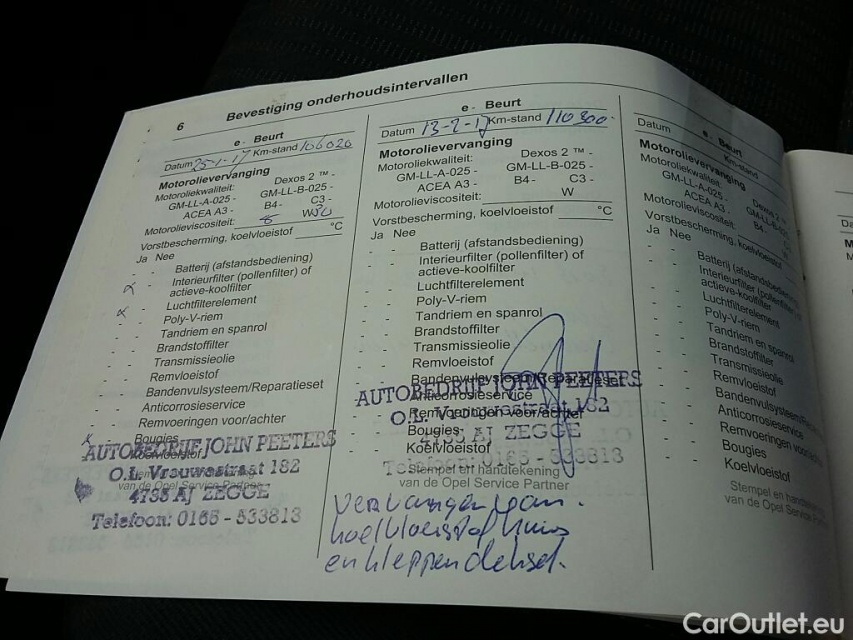 6 Bevestiging onderhoudsintervallen
e - Beurt
Datum 25-1-17 Km-stand 106020
Motorolievervanging
Motoroliekwaliteit: Dexos 2 ™ -
GM-LL-A-025 - GM-LL-B-025 -
ACEA A3 - B4 - C3 -
Motorolieviscositeit: 5 W 30
Vorstbescherming, koelvloeistof °C
Ja Nee
- - Batterij (afstandsbediening)
- - Interieurfilter (pollenfilter) of
actieve-koolfilter
- - Luchtfilterelement
- - Poly-V-riem
- - Tandriem en spanrol
- - Brandstoffilter
- - Transmissieolie
- - Remvloeistof
- - Bandenvulsysteem/Reparatieset
- - Anticorrosieservice
- - Remvoeringen voor/achter
- - Bougies
Koelvloeistof
AUTOBEDRIJF JOHN PEETERS
O.L. Vrouwestraat 182
van de Opel Service Partner
4735 AJ ZEGGE
Telefoon: 0165 - 533813
e - Beurt
Datum 13-2-17 Km-stand 110300
Motorolievervanging
Motoroliekwaliteit: Dexos 2 ™ -
GM-LL-A-025 - GM-LL-B-025 -
ACEA A3 - B4 - C3 -
Motorolieviscositeit: W
Vorstbescherming, koelvloeistof °C
Ja Nee
- - Batterij (afstandsbediening)
- - Interieurfilter (pollenfilter) of
actieve-koolfilter
- - Luchtfilterelement
- - Poly-V-riem
- - Tandriem en spanrol
- - Brandstoffilter
- - Transmissieolie
- - Remvloeistof
- - Bandenvulsysteem/Reparatieset
AUTOBEDRIJF JOHN PEETERS
- - Anticorrosieservice
- - Remvoeringen voor/achter
O.L. Vrouwestraat 182
- - Bougies
4735 AJ ZEGGE
- - Koelvloeistof
Telefoon: 0165 - 533813
Stempel en handtekening
van de Opel Service Partner
Vervangen van
koelvloeistof huis
en kleppendeksel.
e - Beurt
Datum Km-stand
Motorolievervanging
Motoroliekwaliteit: Dexos 2
GM-LL-A-025 - GM-LL-B-025
ACEA A3 - B4 -
Motorolieviscositeit:
Vorstbescherming, koelvloeistof
Ja Nee
- - Batterij (afstandsbediening)
- - Interieurfilter (pollenfilter) of
actieve-koolfilter
- - Luchtfilterelement
- - Poly-V-riem
- - Tandriem en spanrol
- - Brandstoffilter
- - Transmissieolie
- - Remvloeistof
- - Bandenvulsysteem/
- - Anticorrosieservice
- - Remvoeringen voor/achter
- - Bougies
- - Koelvloeistof
Stempel en
van de Opel Service
CarOutlet.eu